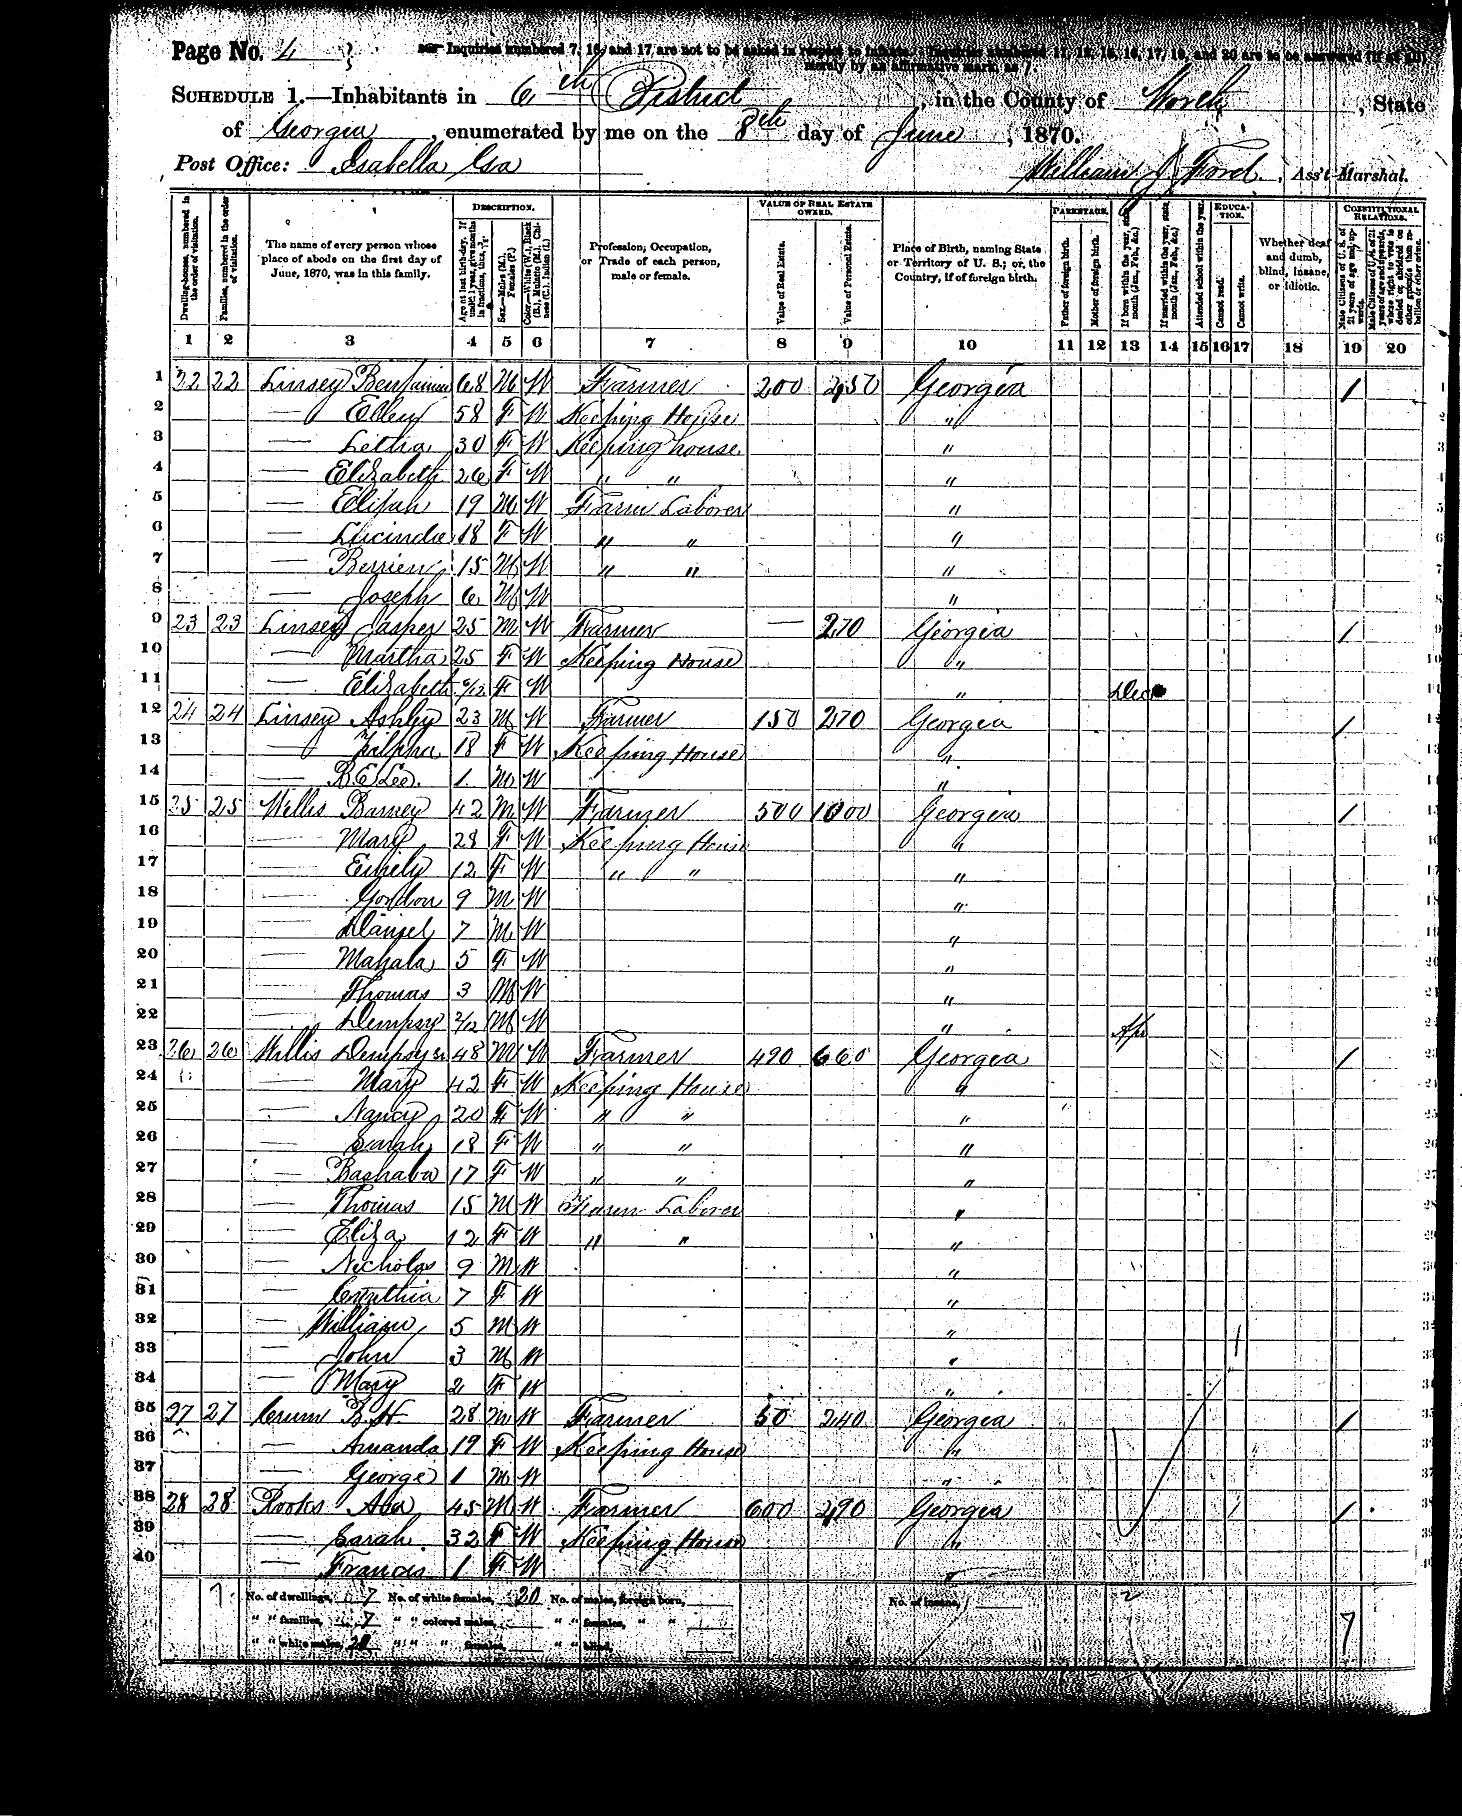 Page No. 4
Inquiries numbered 7, 16, and 17 are not to be asked in respect to infants. Inquiries numbered 11, 12, 15, 16, 17, 19, and 20 are to be answered (if at all)
merely by an affirmative mark, as /.
SCHEDULE 1.—Inhabitants in 6th District, in the County of Worth, State
of Georgia, enumerated by me on the 8th day of June, 1870.
Post Office: Isabella Ga
William J Ford, Ass't Marshal.
Dwelling-houses, numbered in the order of visitation.
Families, numbered in the order of visitation.
The name of every person whose place of abode on the first day of June, 1870, was in this family.
DESCRIPTION.
Age at last birth-day. If under 1 year, give months in fractions, thus, 3/12.
Sex.—Males (M.), Females (F.)
Color.—White (W.), Black (B.), Mulatto (M.), Chinese (C.), Indian (I.)
Profession, Occupation, or Trade of each person, male or female.
VALUE OF REAL ESTATE OWNED.
Value of Real Estate.
Value of Personal Estate.
Place of Birth, naming State or Territory of U. S.; or the Country, if of foreign birth.
PARENTAGE.
Father of foreign birth.
Mother of foreign birth.
If born within the year, state month (Jan., Feb., &c.)
If married within the year, state month (Jan., Feb., &c.)
Attended school within the year.
EDUCATION.
Cannot read.
Cannot write.
Whether deaf and dumb, blind, insane, or idiotic.
CONSTITUTIONAL RELATIONS.
Male Citizens of U. S. of 21 years of age and upwards.
Male Citizens of U. S. of 21 years of age and upwards, whose right to vote is denied or abridged on other grounds than rebellion or other crime.
1 2 3 4 5 6 7 8 9 10 11 12 13 14 15 16 17 18 19 20
1 22 22 Linsey Benjamin 68 M W Farmer 200 450 Georgia 1
2 — Ellen 58 F W Keeping House "
3 — Letha 30 F W Keeping house "
4 — Elizabeth 26 F W " " "
5 — Elijah 19 M W Farm Laborer "
6 — Lucinda 18 F W " " "
7 — Berrien 15 M W " " "
8 — Joseph 6 M W "
9 23 23 Linsey Jasper 25 M W Farmer — 270 Georgia 1
10 — Martha 25 F W Keeping House "
11 — Elizabeth 6/12 F W " Dec
12 24 24 Linsey Ashley 23 M W Farmer 150 270 Georgia 1
13 — Zilpha 18 F W Keeping House "
14 — R. E. Lee 1 M W "
15 25 25 Willis Barney 42 M W Farmer 500 1000 Georgia 1
16 — Mary 28 F W Keeping House "
17 — Emily 12 F W " " "
18 — Gordon 9 M W "
19 — Daniel 7 M W "
20 — Mahala 5 F W "
21 — Thomas 3 M W "
22 — Dempsy 2/12 M W " Apr
23 26 26 Willis Dempsy sr 48 M W Farmer 490 660 Georgia 1
24 — Mary 42 F W Keeping House "
25 — Nancy 20 F W " " "
26 — Sarah 18 F W " " "
27 — Bashaba 17 F W " " "
28 — Thomas 15 M W Farm Laborer "
29 — Eliza 12 F W " " "
30 — Nicholas 9 M W "
31 — Cynthia 7 F W "
32 — William 5 M W "
33 — John 3 M W "
34 — Mary 2 F W "
35 27 27 Crum B. H. 28 M W Farmer 50 240 Georgia 1
36 — Amanda 19 F W Keeping House "
37 — George 1 M W "
38 28 28 Rooks Asa 45 M W Farmer 600 290 Georgia 1
39 — Sarah 32 F W Keeping House "
40 — Francis 1 F W "
No. of dwellings, 7 No. of white females, 20 No. of males, foreign born, No. of insane,
" " families, 7 " " colored males, " " females, " "
" " white males, 20 " " " females, " " blind,
7